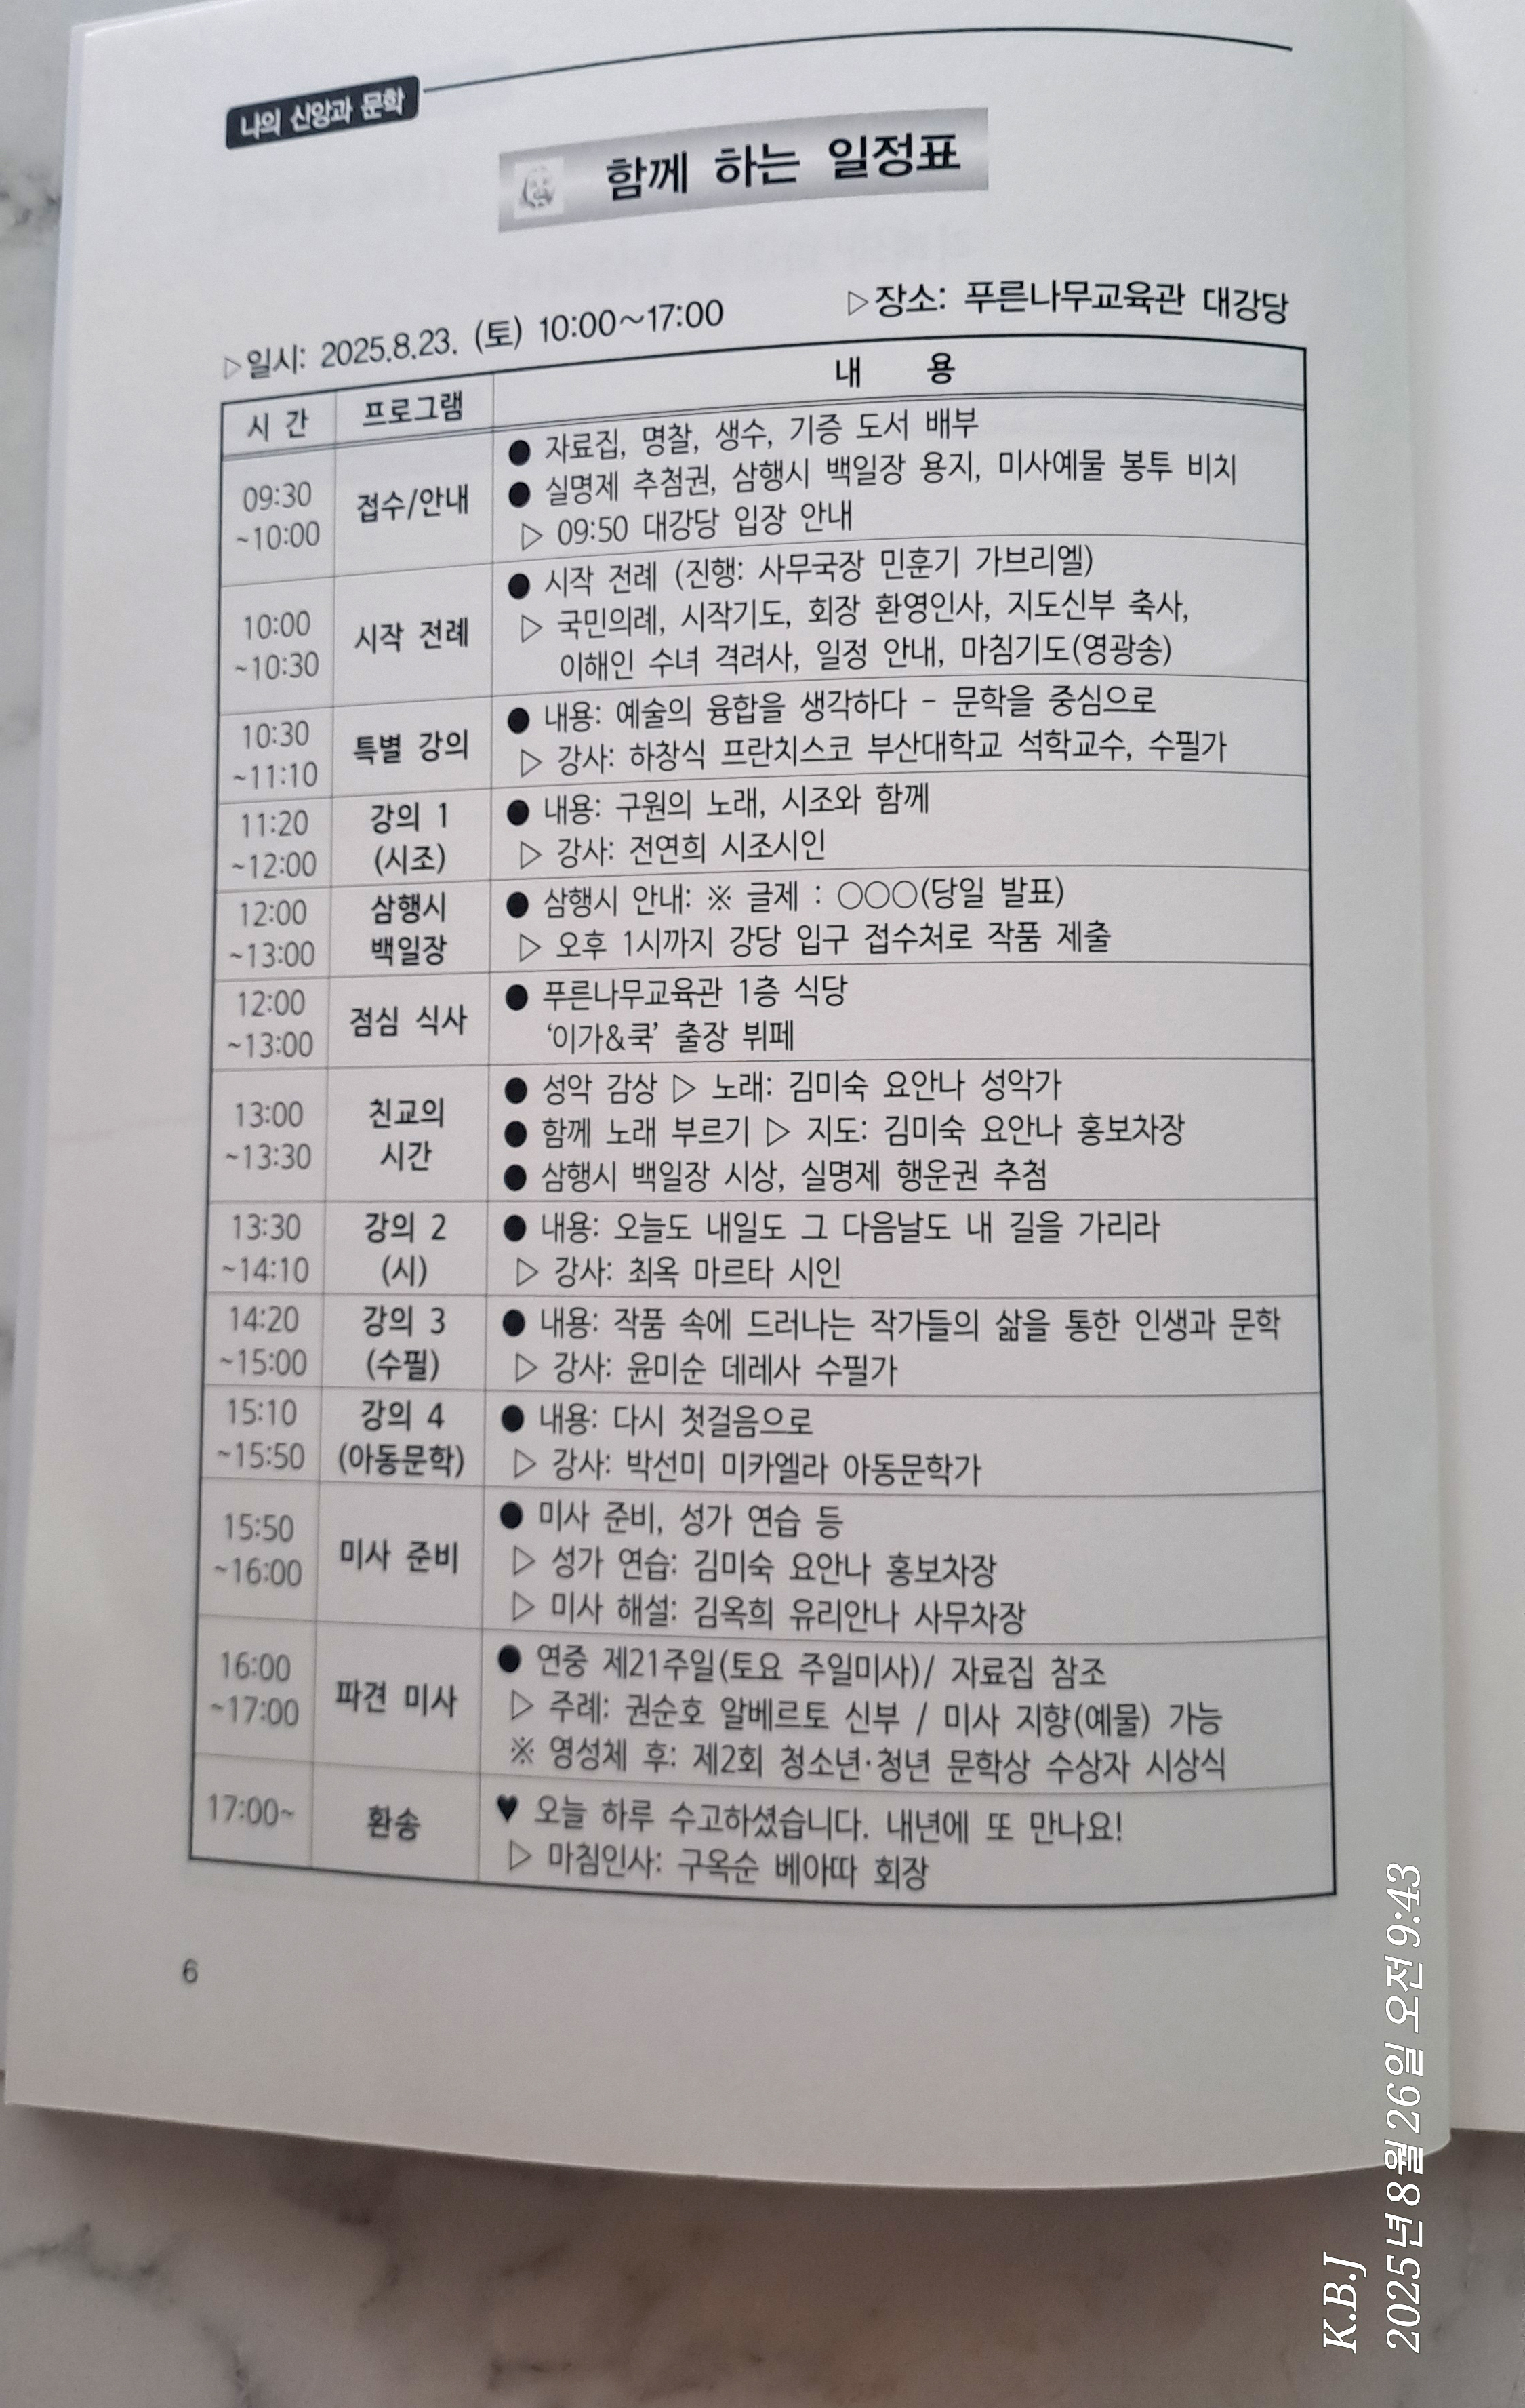 나의 신앙과 문학
함께 하는 일정표
▷일시: 2025.8.23. (토) 10:00~17:00 ▷장소: 푸른나무교육관 대강당
시 간 프로그램 내 용
09:30
~10:00
접수/안내
● 자료집, 명찰, 생수, 기증 도서 배부
● 실명제 추첨권, 삼행시 백일장 용지, 미사예물 봉투 비치
▷ 09:50 대강당 입장 안내
10:00
~10:30
시작 전례
● 시작 전례 (진행: 사무국장 민훈기 가브리엘)
▷ 국민의례, 시작기도, 회장 환영인사, 지도신부 축사,
이해인 수녀 격려사, 일정 안내, 마침기도(영광송)
10:30
~11:10
특별 강의
● 내용: 예술의 융합을 생각하다 - 문학을 중심으로
▷ 강사: 하창식 프란치스코 부산대학교 석학교수, 수필가
11:20
~12:00
강의 1
(시조)
● 내용: 구원의 노래, 시조와 함께
▷ 강사: 전연희 시조시인
12:00
~13:00
삼행시
백일장
● 삼행시 안내: ※ 글제 : ○○○(당일 발표)
▷ 오후 1시까지 강당 입구 접수처로 작품 제출
12:00
~13:00
점심 식사
● 푸른나무교육관 1층 식당
‘이가&쿡’ 출장 뷔페
13:00
~13:30
친교의
시간
● 성악 감상 ▷ 노래: 김미숙 요안나 성악가
● 함께 노래 부르기 ▷ 지도: 김미숙 요안나 홍보차장
● 삼행시 백일장 시상, 실명제 행운권 추첨
13:30
~14:10
강의 2
(시)
● 내용: 오늘도 내일도 그 다음날도 내 길을 가리라
▷ 강사: 최옥 마르타 시인
14:20
~15:00
강의 3
(수필)
● 내용: 작품 속에 드러나는 작가들의 삶을 통한 인생과 문학
▷ 강사: 윤미순 데레사 수필가
15:10
~15:50
강의 4
(아동문학)
● 내용: 다시 첫걸음으로
▷ 강사: 박선미 미카엘라 아동문학가
15:50
~16:00
미사 준비
● 미사 준비, 성가 연습 등
▷ 성가 연습: 김미숙 요안나 홍보차장
▷ 미사 해설: 김옥희 유리안나 사무차장
16:00
~17:00
파견 미사
● 연중 제21주일(토요 주일미사)/ 자료집 참조
▷ 주례: 권순호 알베르토 신부 / 미사 지향(예물) 가능
※ 영성체 후: 제2회 청소년·청년 문학상 수상자 시상식
17:00~
환송
♥ 오늘 하루 수고하셨습니다. 내년에 또 만나요!
▷ 마침인사: 구옥순 베아따 회장
6
K.B.J
2025년 8월 26일 오전 9:43